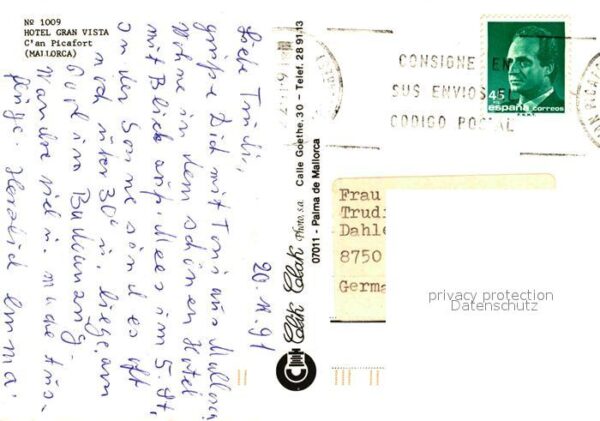 Nº 1009
HOTEL GRAN VISTA
C'an Picafort
(MALLORCA)
20.11.91
Liebe Trudi,
grüße Dich mit Toni aus Mallorca
Wohne in dem schönen Hotel
mit Blick auf Meer im 5. St.
In der Sonne sind es oft
noch über 30° u. liege am
Pool im Badeanzug.
Wandre viel u. mache Aus-
flüge. Herzlich
Clik Clak Photo, s.a. Calle Goethe, 30 - Telef. 28 91 13
07011 - Palma de Mallorca
CONSIGNE EN
SUS ENVIOS EL
CODIGO POSTAL
45
españa correos
F.N.M.T.
Frau
Trudi
Dahle
8750
Germa
privacy protection
Datenschutz